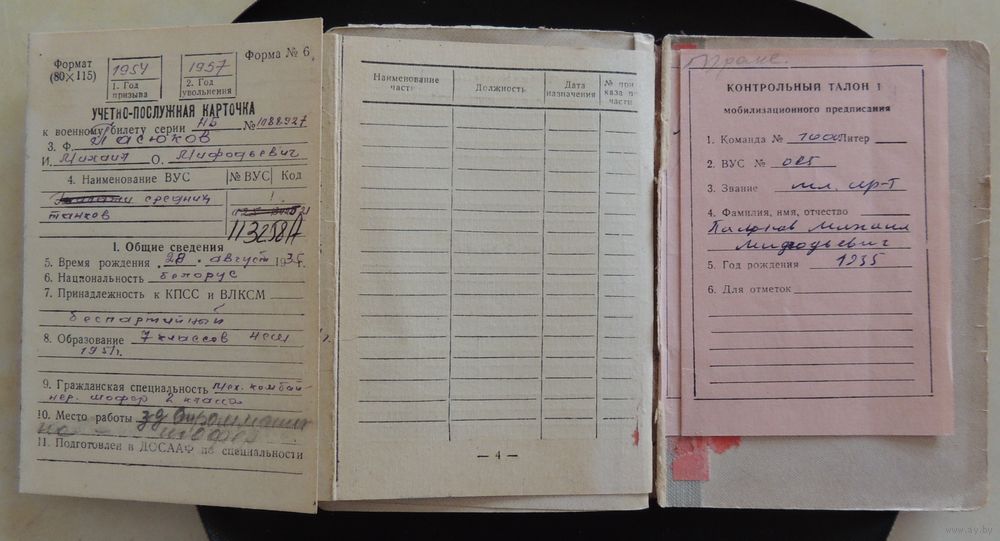 Формат
(80×115)
1954
1. Год
призыва
1957
2. Год
увольнения
Форма № 6
УЧЕТНО-ПОСЛУЖНАЯ КАРТОЧКА
к военному билету серии НБ №
3. Ф. Пасюков
И. Михаил О. Мифодьевич
4. Наименование ВУС № ВУС Код
средних
танков
113258А
I. Общие сведения
5. Время рождения 28 август 1935
6. Национальность белорус
7. Принадлежность к КПСС и ВЛКСМ
беспартийный
8. Образование 7 классов
1951г.
9. Гражданская специальность Мех. комбай-
нер, шофер 2 класса
10. Место работы
11. Подготовлен в ДОСААФ по специальности
Наименование
части
Должность
Дата
назначения
№ при
каза по
части
— 4 —
КОНТРОЛЬНЫЙ ТАЛОН 1
мобилизационного предписания
1. Команда № Литер
2. ВУС №
3. Звание мл. с-р-т
4. Фамилия, имя, отчество
Пасюков Михаил
Мифодьевич
5. Год рождения 1935
6. Для отметок
www.ay.by